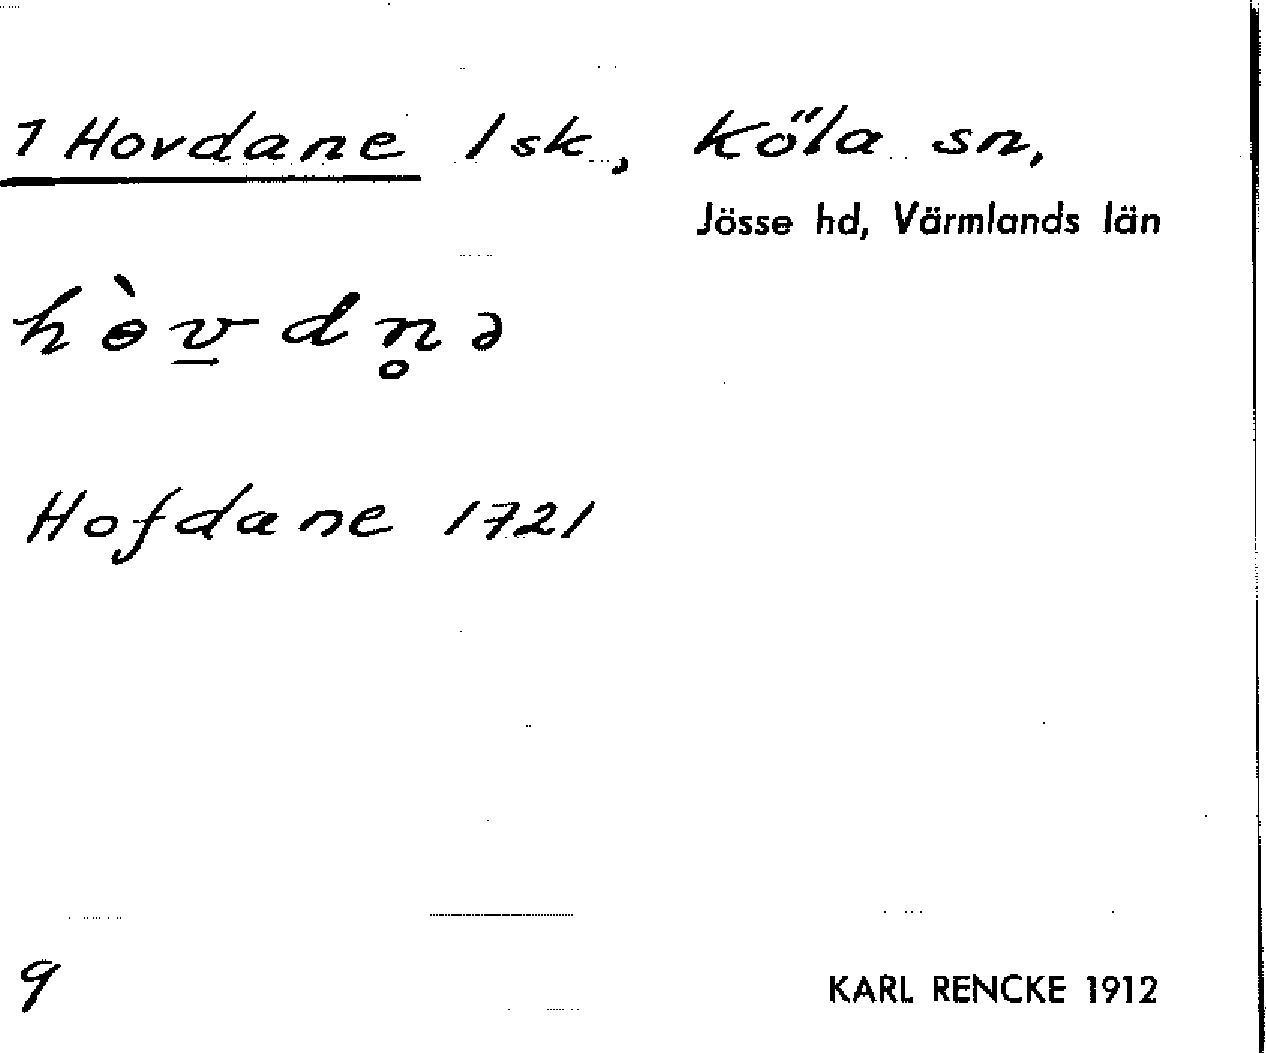 1 Hovdane 1 sk., Köla sn,
Jösse hd, Värmlands län
hɵ̀v̲dn̥ə
Hofdane 1721
9
KARL RENCKE 1912